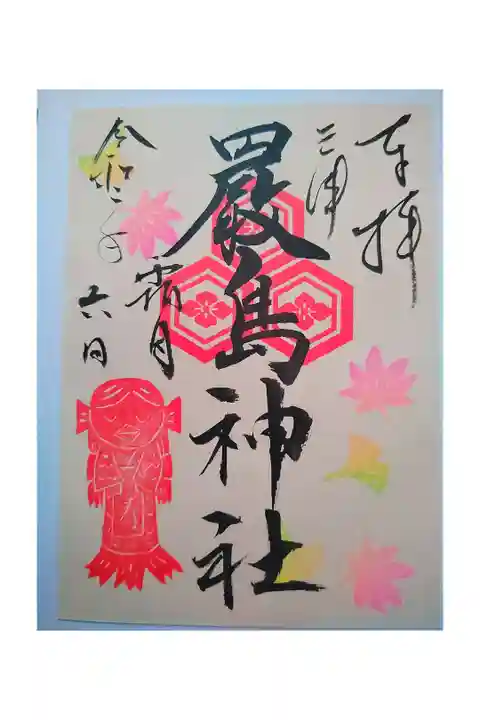 奉拝
嚴島神社
令和二年
霜月
六日